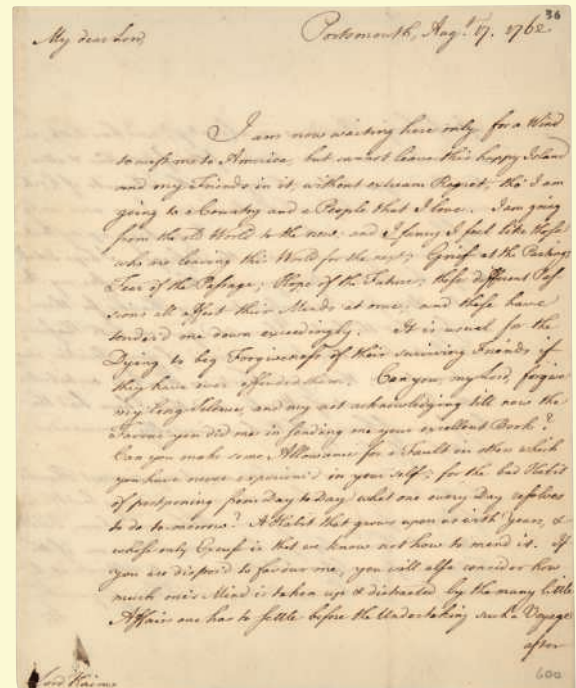 36
My dear Lord,
Portsmouth, Augt. 17. 1762
I am now waiting here only for a Wind
to waft me to America, but cannot leave this happy Island
and my Friends in it, without extream Regret, tho' I am
going to a Country and a People that I love. I am going
from the old World to the new; and I fancy I feel like those
who are leaving this World for the next; Grief at the Parting;
Fear of the Passage; Hope of the Future; these different Pas
sions all affect their Minds at once; and these have
tender'd me down exceedingly. It is usual for the
Dying to beg Forgiveness of their surviving Friends if
they have ever offended them. Can you, my Lord, forgive
my long Silence, and my not acknowledging till now the
Favour you did me in sending me your excellent Book?
Can you make some Allowance for a Fault in others which
you have never experienc'd in your self; for the bad Habit
of postponing from Day to Day what one every Day resolves
to do tomorrow? A Habit that grows upon us with Years, &
whose only Excuse is that we know not how to mend it. If
you are dispos'd to favour me, you will also consider how
much one's Mind is taken up & distracted by the many little
Affairs one has to settle before the Undertaking such a Voyage
after
Lord Kaims
600